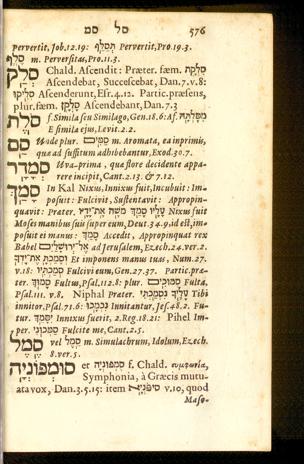 סל סמ 576
pervertit, Job.12.19: תְּסַלֵּף Pervertit, Pro.19.3.
סֶלֶף m. Perversitas, Pro.11.3.
סְלֵק Chald. Ascendit: Præter. fæm. סִלְקַת
Ascendebat, Succescebat, Dan.7.v.8:
סְלִיקוּ Ascenderunt, Esr.4.12. Partic.præsens,
plur. fæm. סָלְקָן Ascendebant, Dan.7.3
סֹלֶת f. Simila seu Similago, Gen.18.6: Af. מִסָּלְתָּהּ
E simila ejus, Levit.2.2.
סַם Unde plur. סַמִּים m. Aromata, ea inprimis,
quæ ad suffitum adhibebantur, Exod.30.7.
סְמָדַר Uva-prima, quæ flore decidente appa-
rere incipit, Cant. 2.13. & 7.12.
סָמַךְ In Kal Nixus, Innixus fuit, Incubuit: Im-
posuit: Fulcivit, Sustentavit: Appropin-
quavit: Præter. עָלָיו סָמַךְ מֹשֶׁה אֶת־יָדָיו Nixus fuit
Moses manibus suis super eum, Deut. 34.9. id est, im-
posuit ei manus: סָמַךְ Accedit, Appropinquat rex
Babel אֶל־יְרוּשָׁלַיִם ad Jerusalem, Ezech.24.ver.2.
וְסָמַכְתָּ אֶת־יָדְךָ Et impones manus tuas, Num.27.
v.18: סְמַכְתִּיו Fulcivi eum, Gen.27.37. Partic.præ-
ter. סָמוּךְ Fultus, Psal.112.8: plur. סְמוּכִים Fulta,
Psal.111. v.8. Niphal Præter. עָלֶיךָ נִסְמַכְתִּי Tibi
innitor, Psal.71.6: נִסְמָכוּ Innitantur, Jes.48.2. Fu-
tur. יִסָּמֵךְ Innixus fuerit, 2.Reg.18.21: Pihel Im-
per. סַמְּכוּנִי Fulcite me, Cant.2.5.
סֶמֶל vel סֵמֶל m. Simulachrum, Idolum, Ezech.
8.ver.5.
סוּמְפּוֹנְיָה et סִמְפּוֹנְיָה f. Chald. συμφωνία,
Symphonia, à Græcis mutu-
ata vox, Dan.3.5.15: item סִיפֹנְיָא v.10, quod
Maso-